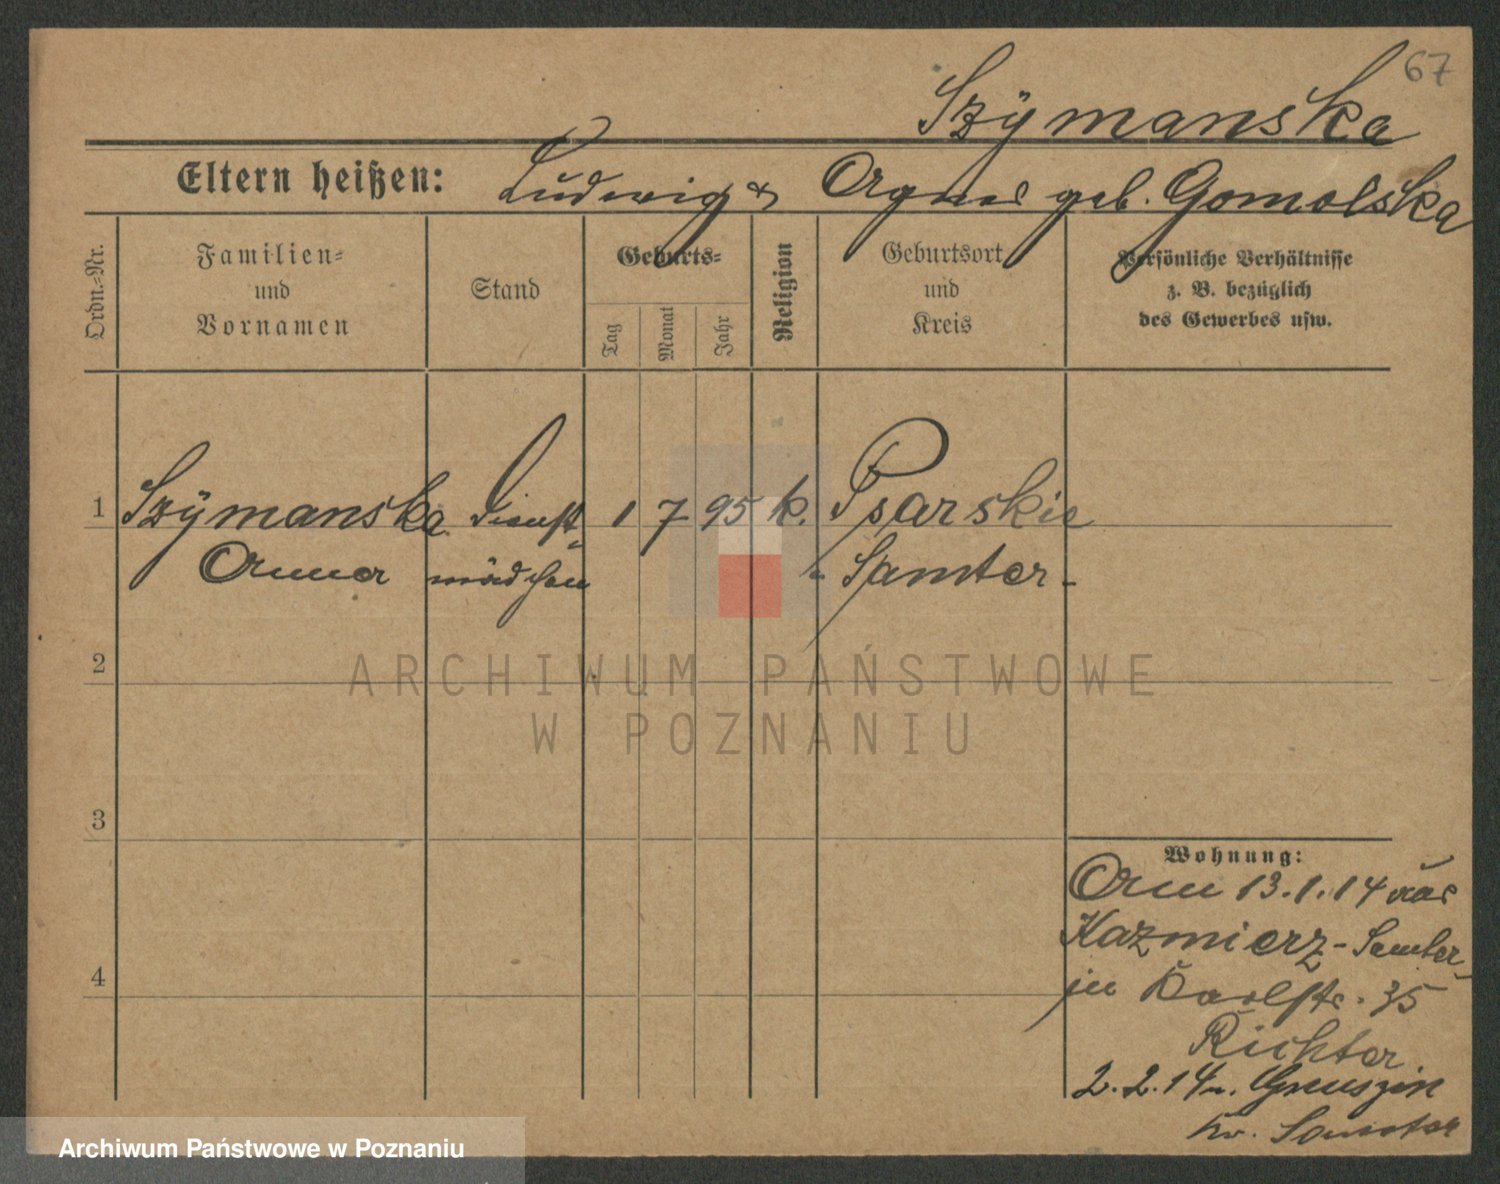 67
Szÿmanska
Eltern heißen: Ludwig & Agnes geb. Gomolska
Ordn.-Nr.
Familien-
und
Vornamen
Stand
Geburts-
Tag
Monat
Jahr
Religion
Geburtsort
und
Kreis
Persönliche Verhältnisse
z. B. bezüglich
des Gewerbes usw.
1 Szÿmanska Dienst- 1 7 95 k. Psarskie
Anna mädchen - Samter -
2
3
4
Wohnung:
Am 13.1.14 aus
Kazmierz - Samter -
in Karlstr. 35
Richter
2.2.14 n.
Kr. Samter
ARCHIWUM PAŃSTWOWE
W POZNANIU
Archiwum Państwowe w Poznaniu